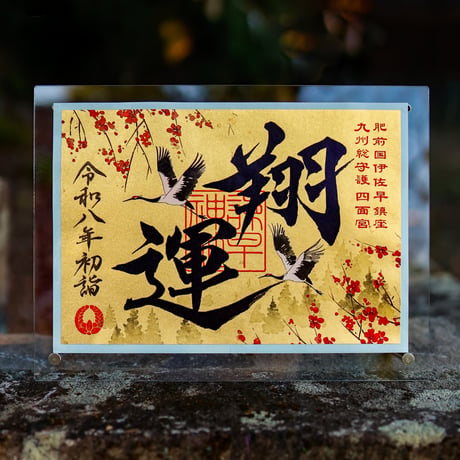 肥前国伊佐早鎮座
九州総守護 四面宮
翔
運
令和八年初詣